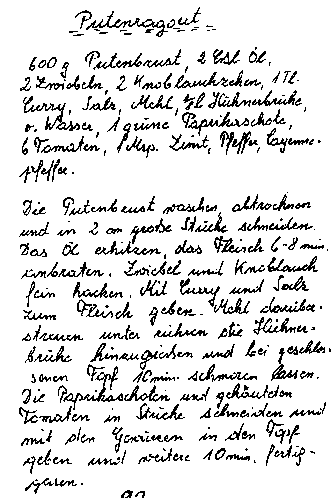 Putenragout.
600 g Putenbrust, 2 Essl. Öl,
2 Zwiebeln, 2 Knoblauchzehen, 1 Tl.
Curry, Salz, Mehl, Hühnerbrühe,
o. Wasser, 1 grüne Paprikaschote,
6 Tomaten, 1 Msp. Zimt, Pfeffer, Cayenne-
pfeffer.
Die Putenbrust waschen, abtrocknen
und in 2 cm große Stücke schneiden.
Das Öl erhitzen, das Fleisch 6-8 min.
anbraten. Zwiebel und Knoblauch
fein hacken. Mit Curry und Salz
zum Fleisch geben. Mehl darüber-
streuen unter rühren die Hühner-
brühe hinzugiessen und bei geschlos-
senen Topf 10 min. schmoren lassen.
Die Paprikaschoten und gehäuteten
Tomaten in Stücke schneiden und
mit den Gewürzen in den Topf
geben und weitere 10 min. fertig-
garen.